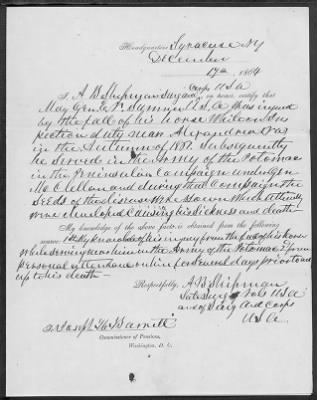 Headquarters, Syracuse NY
December
17th, 1864
I, A B Shipman Surg and Corps U S A on honor, certify that
Maj Gen E V Sumner U.S.A was injured
by the fall of his horse while on Ins
pection duty near Alexandria Va
in the Autumn of 1861. Subsequently
he served in the Army of the Potomac
in the Peninsular Campaign under Gen
McClellan and during that Campaign the
seeds of the disease were sown which
were developed causing his sickness and death
My knowledge of the above facts is obtained from the following
source: 1st By knowledge of his injury from the fall of his horse
while serving with him in the Army of the Potomac 2d from
personal attendance on him for several days prior to and
up to his death
Respectfully, A B Shipman
Late Surg Vols U S A
and Surg Corps
U S A
Joseph H Barrett
Commissioner of Pensions,
Washington, D. C.